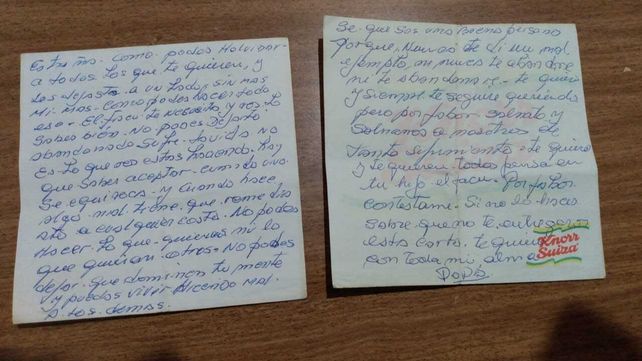 como podes
a todos los que te quieren, y
los dejaste a un lado, sin mas
ni mas. como podes hacer todo
eso. El facu te necesita y vos lo
sabes bien. No podes dejarlo
abandonado su vida no
es lo que vos estas haciendo. hay
que saber aceptar. cuando uno
se equivoca. y cuando hace
algo mal. tiene que
a cualquier costo. No podes
hacer lo que quieras ni lo
que quieran otros. No podes
dejar que dominen tu mente
y puedas vivir haciendo mal
a los demas.
Se que sos una buena persona
porque, Nunca te di un mal
ejemplo, ni nunca te abandone
ni te abandonare. te quiero
y siempre te seguire queriendo
pero por fabor salvate y
salvanos a nosotros de
tanto sufrimiento. te quiero
y te quieren todos pensa en
tu hijo el facu. Por fabor
contestame. Si no lo haces
sabre que no te entregaron
esta carta. te quiero
con toda mi alma
Papa
Knorr
Suiza